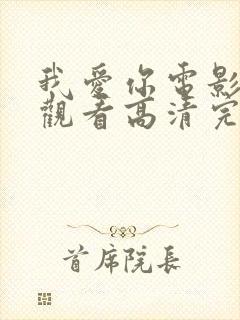 我愛你電影
觀看高清完
首席院長